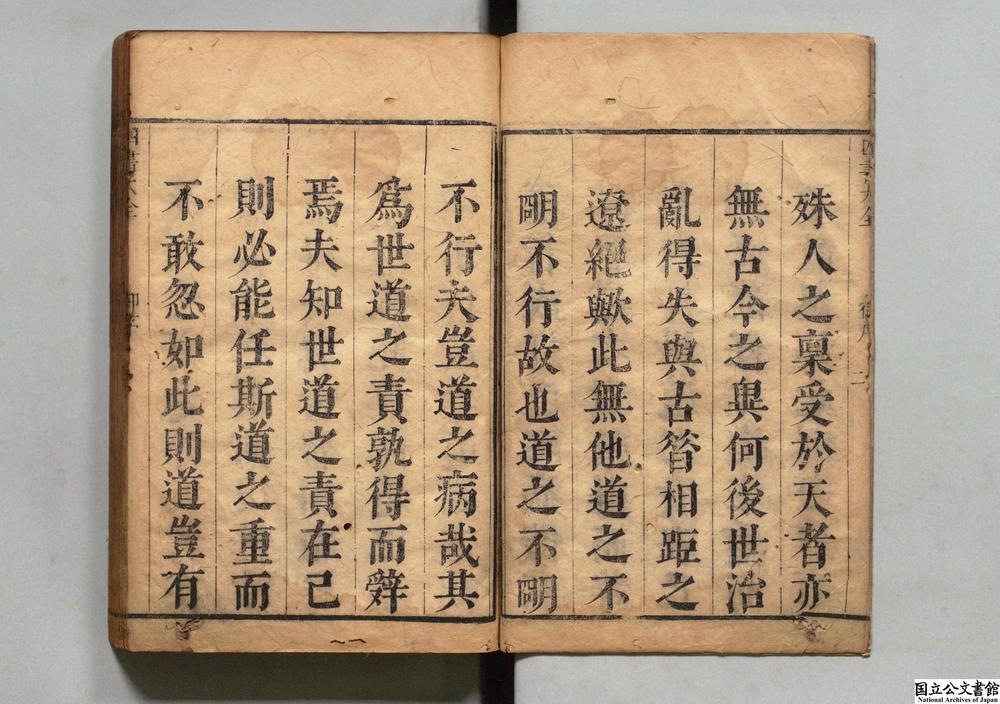 殊人之禀受於天者亦
無古今之異何後世治
亂得失與古昔相距之
遼絕歟此無他道之不
明不行故也道之不明
不行夫豈道之病哉其
爲世道之責孰得而辭
焉夫知世道之責在己
則必能任斯道之重而
不敢忽如此則道豈有
四書大全
四書大全
国立公文書館
National Archives of Japan